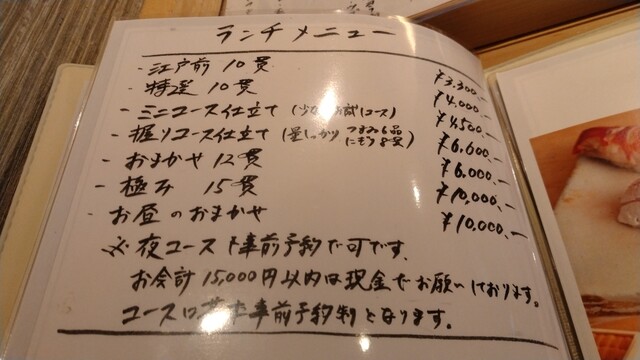 ランチメニュー
・江戸前 10貫 ¥3,300.-
・特選 10貫 ¥4,000.-
・ミニコース仕立て (少なめお試しコース) ¥4,500.-
・握りコース仕立て (量しっかり つまみ6品 にぎり8貫) ¥6,600.-
・おまかせ 12貫 ¥6,000.-
・極み 15貫 ¥10,000.-
・お昼のおまかせ ¥10,000.-
※夜コースも事前予約で可です。
お会計15,000円以内は現金でお願いしております。
コースは 事前予約制となります。